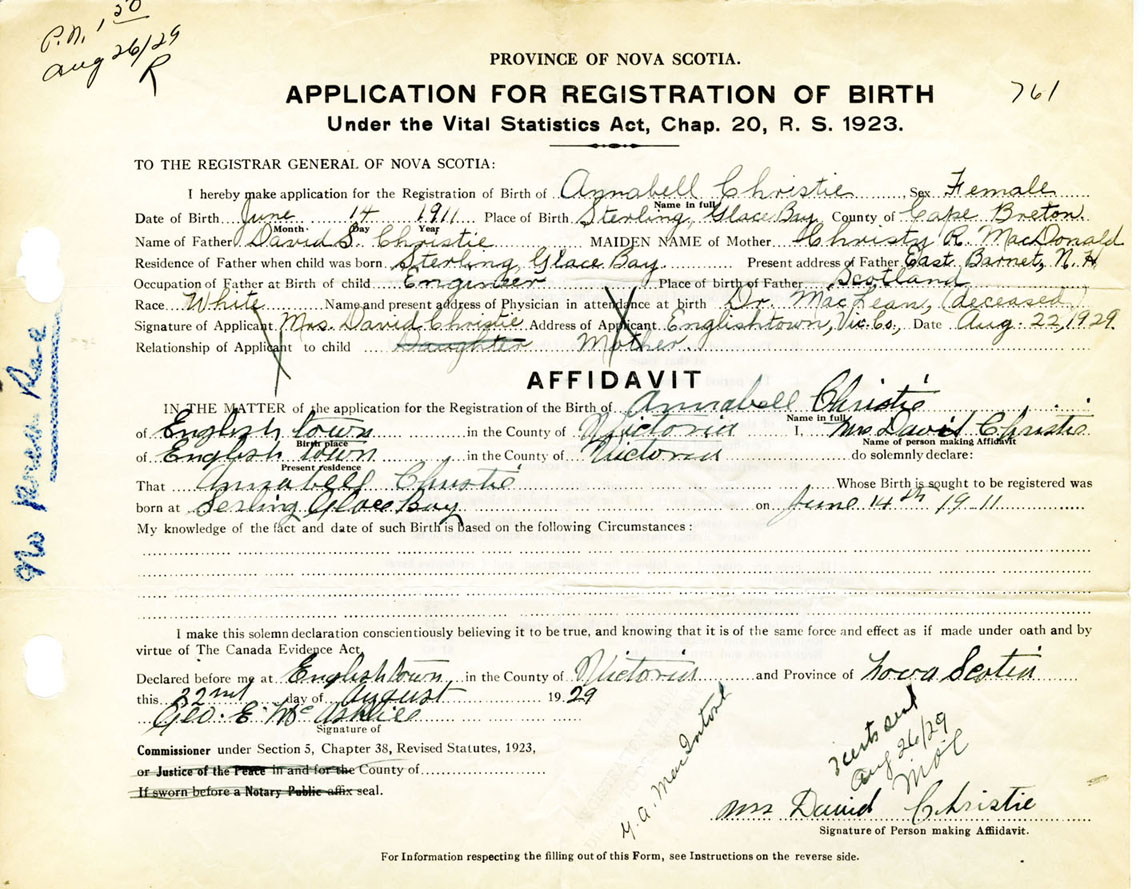 P.N. 1 50
Aug 26/29
R
PROVINCE OF NOVA SCOTIA.
APPLICATION FOR REGISTRATION OF BIRTH
761
Under the Vital Statistics Act, Chap. 20, R. S. 1923.
TO THE REGISTRAR GENERAL OF NOVA SCOTIA:
I hereby make application for the Registration of Birth of Annabell Christie Sex Female
Name in full
Date of Birth June 14 1911 Place of Birth Sterling, Glace Bay County of Cape Breton
Month Day Year
Name of Father David S. Christie MAIDEN NAME of Mother Christy R. MacDonald
Residence of Father when child was born Sterling Glace Bay Present address of Father East Barnet, N.H
Occupation of Father at Birth of child Engineer Place of birth of Father Scotland
Race White Name and present address of Physician in attendance at birth Dr. MacLean, (deceased)
Signature of Applicant Mrs. David Christie Address of Applicant Englishtown, Vic. Co., Date Aug. 22, 1929
Relationship of Applicant to child Daughter Mother.
AFFIDAVIT
IN THE MATTER of the application for the Registration of the Birth of Annabell Christie
Name in full
of English town in the County of Victoria I, Mrs David Christie
Birth place Name of person making Affidavit
of English town in the County of Victoria do solemnly declare:
Present residence
That Annabell Christie Whose Birth is sought to be registered was
born at Serling Glace Bay on June 14th 1911
My knowledge of the fact and date of such Birth is based on the following Circumstances:
I make this solemn declaration conscientiously believing it to be true, and knowing that it is of the same force and effect as if made under oath and by
virtue of The Canada Evidence Act.
Declared before me at Englishtown in the County of Victoria and Province of Nova Scotia
this 22nd day of August 1929
Geo. E. McAskill
Signature of
Commissioner under Section 5, Chapter 38, Revised Statutes, 1923,
or Justice of the Peace in and for the County of
If sworn before a Notary Public affix seal.
MacIntosh
certs sent
Aug 26/29
Mrs David Christie
Signature of Person making Affidavit.
For Information respecting the filling out of this Form, see Instructions on the reverse side.